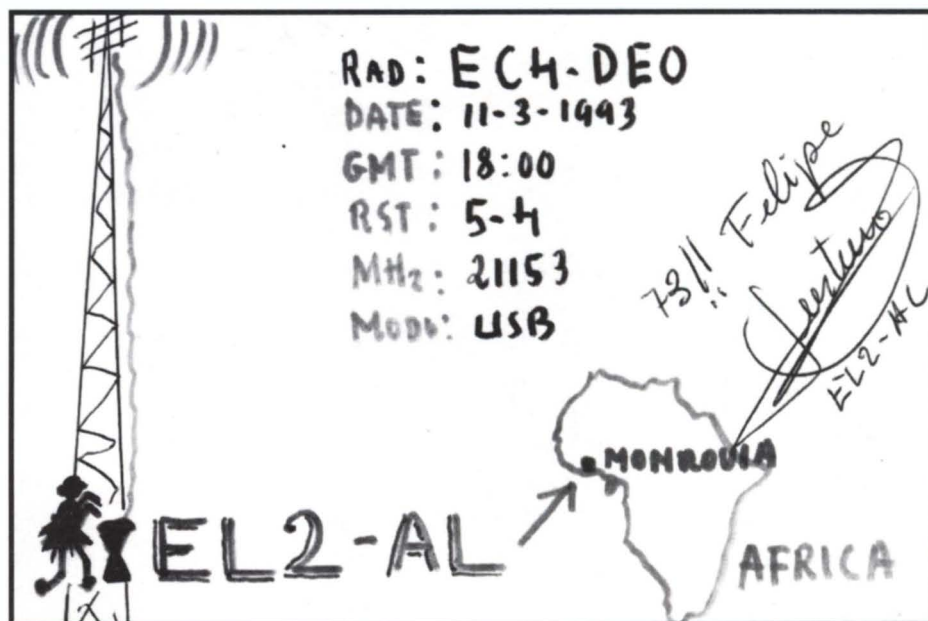 RAD: EC4-DEO
DATE: 11-3-1993
GMT: 18:00
RST: 5-4
MHz: 21153
MODO: USB
73!! Felipe
EL2-AL
MONROVIA
EL2-AL
AFRICA